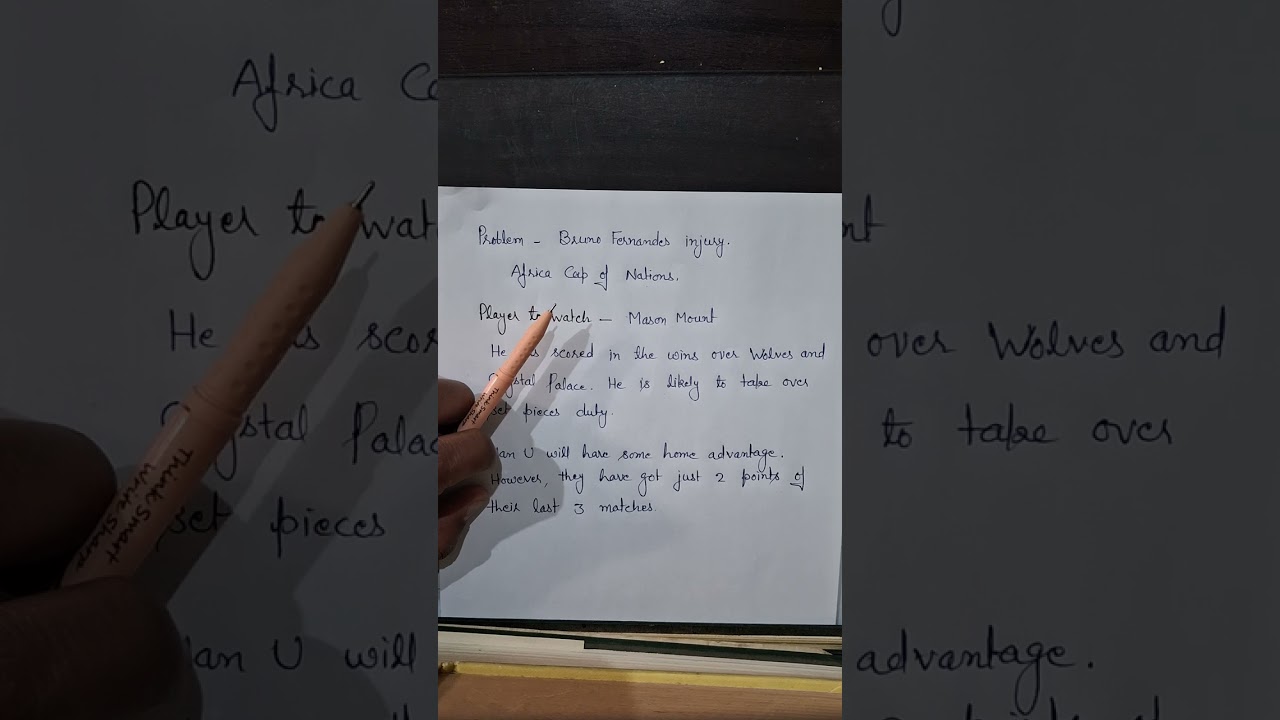 Problem - Bruno Fernandes injury.
Africa Cup of Nations.
Player to watch - Mason Mount
He scored in the wins over Wolves and
Palace. He is likely to take over
set pieces duty.
U will have some home advantage.
However, they have got just 2 points of
their last 3 matches.
Think Smart
Write Sharp